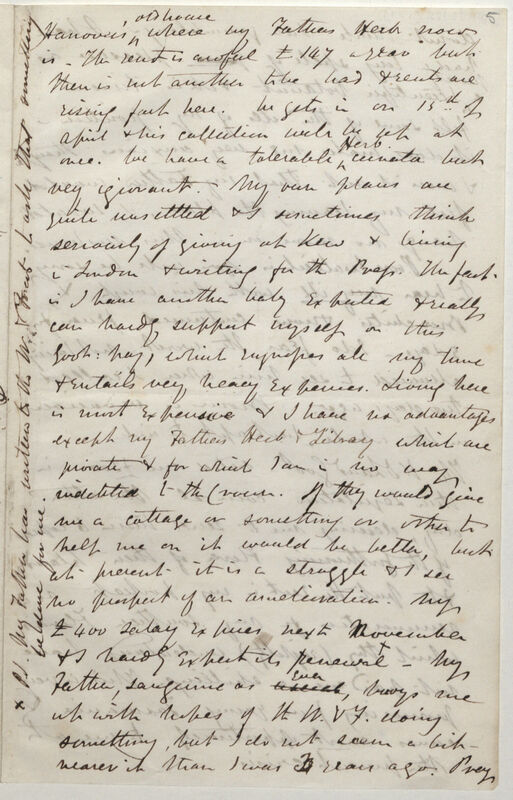 5
old house
Hanover's, where my Fathers Herb. now
is. The rent is awful £147 a year but
there is not another to be had & rents are
rising fast here. he gets in on 15th of
April & his collection will be got at
once. We have a tolerable Herb. curator but
very ignorant. My own plans are
quite unsettled & I sometimes think
seriously of giving up Kew & living
in London & writing for the Press. The fact
is I have another baby expected & really
can hardly support myself on this
Govt: pay, which engrosses all my time
& entails very heavy expenses. Living here
is most expensive & I have no advantages
except my Fathers Herb & Library which are
private & for which I am in no way
indebted to the Crown. If they would give
me a cottage or something or other to
help me on it would be better, but
at present it is a struggle & I see
no prospect of an amelioration. My
£400 salary expires next November
& I hardly expect its renewal – My
Father, sanguine as ever, buoys me
up with hopes of the W. & F. doing
something, but I do not seem a bit
nearer it than I was 3 years ago. Pray
* P.S. My Father has written to the W. & Forests to ask that something
be done for me.